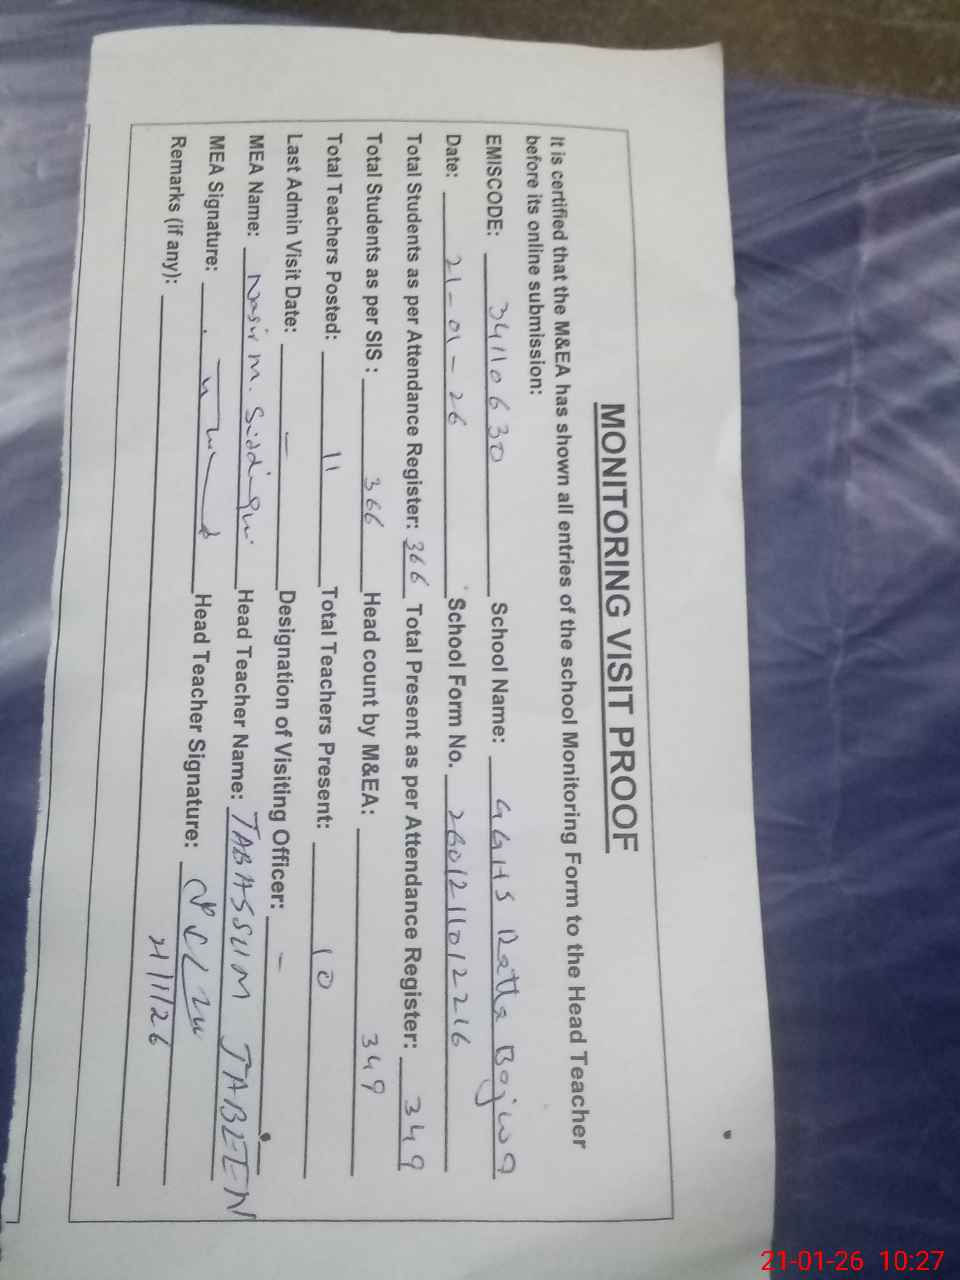 MONITORING VISIT PROOF
It is certified that the M&EA has shown all entries of the school Monitoring Form to the Head Teacher
before its online submission:
EMISCODE: 34110630 School Name: GGHS Ratta Bajwa
Date: 21-01-26 School Form No. 2601211012216
Total Students as per Attendance Register: 366 Total Present as per Attendance Register: 349
Total Students as per SIS : 366 Head count by M&EA: 349
Total Teachers Posted: 11 Total Teachers Present: 10
Last Admin Visit Date: - Designation of Visiting Officer: -
MEA Name: Nasir M. Siddiqui Head Teacher Name: TABASSUM TABEEN
MEA Signature: Head Teacher Signature:
Remarks (if any): 21/1/26
21-01-26 10:27